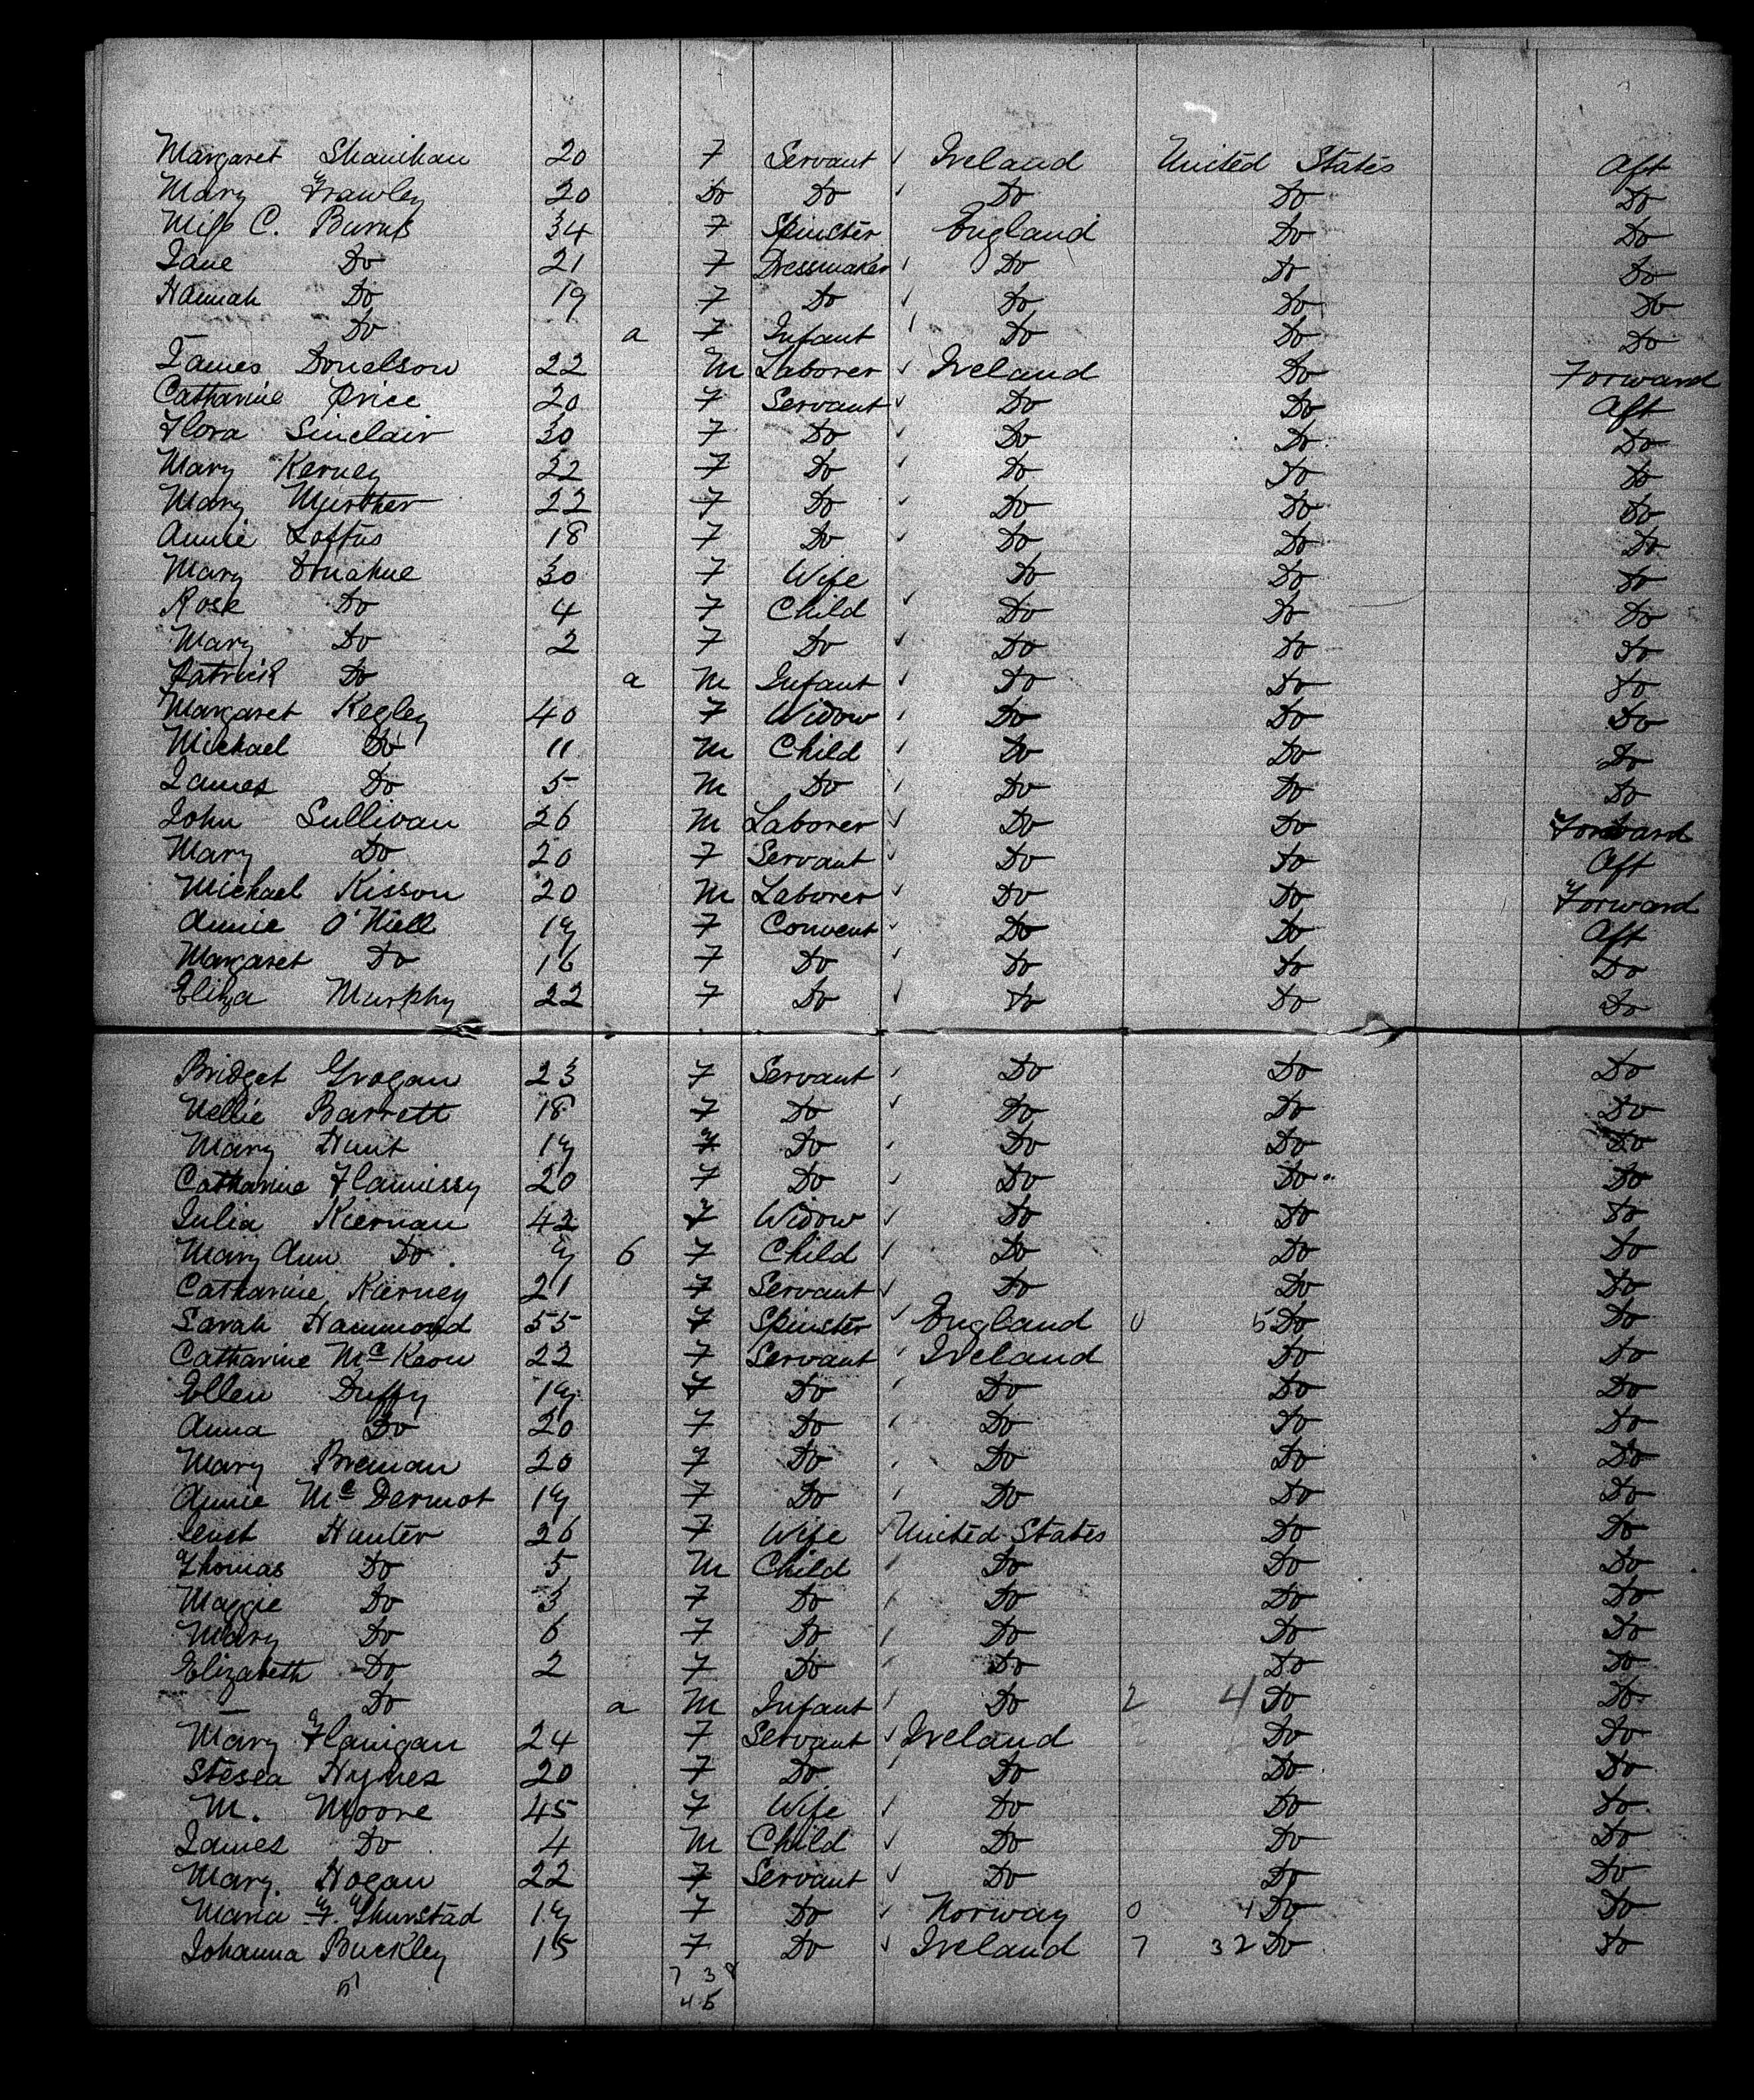 Margaret Shanihan 20 F Servant ✓ Ireland United States Aft
Mary Frawley 20 Do Do ✓ Do Do Do
Miss C. Burns 34 F Spinster England Do Do
Jane Do 21 F Dressmaker ✓ Do Do Do
Hannah Do 19 F Do ✓ Do Do Do
— Do a F Infant ✓ Do Do Do
James Donelson 22 M Laborer ✓ Ireland Do Forward
Catharine Price 20 F Servant ✓ Do Do Aft
Flora Sinclair 30 F Do ✓ Do Do Do
Mary Kerney 22 F Do ✓ Do Do Do
Mary Murther 22 F Do ✓ Do Do Do
Annie Loftus 18 F Do ✓ Do Do Do
Mary Donahue 30 F Wife Do Do Do
Rose Do 4 F Child ✓ Do Do Do
Mary Do 2 F Do ✓ Do Do Do
Patrick Do a M Infant ✓ Do Do Do
Margaret Kegley 40 F Widow ✓ Do Do Do
Michael Do 11 M Child ✓ Do Do Do
James Do 5 M Do ✓ Do Do Do
John Sullivan 26 M Laborer ✓ Do Do Forward
Mary Do 20 F Servant ✓ Do Do Aft
Michael Kisson 20 M Laborer ✓ Do Do Forward
Annie O'Niell 19 F Convent ✓ Do Do Aft
Margaret Do 16 F Do ✓ Do Do Do
Eliza Murphy 22 F Do ✓ Do Do Do
Bridget Grogan 23 F Servant ✓ Do Do Do
Nellie Barrett 18 F Do ✓ Do Do Do
Mary Hunt 19 F Do ✓ Do Do Do
Catharine Flannissy 20 F Do ✓ Do Do Do
Julia Kiernan 42 F Widow ✓ Do Do Do
Mary Ann Do 9 6 F Child ✓ Do Do Do
Catharine Kierney 21 F Servant ✓ Do Do Do
Sarah Hammond 55 F Spinster ✓ England 0 5 Do Do
Catharine McKeon 22 F Servant ✓ Ireland Do Do
Ellen Duffy 19 F Do ✓ Do Do Do
Anna Do 20 F Do ✓ Do Do Do
Mary Brenan 20 F Do ✓ Do Do Do
Annie McDermot 19 F Do ✓ Do Do Do
Hunter 26 F Wife ✓ United States Do Do
Thomas Do 5 M Child ✓ Do Do Do
Maggie Do 3 F Do ✓ Do Do Do
Mary Do 6 F Do ✓ Do Do Do
Elizabeth Do 2 F Do ✓ Do Do Do
— Do a M Infant ✓ Do 2 4 Do Do
Mary Flanigan 24 F Servant ✓ Ireland Do Do
Stesea Hynes 20 F Do ✓ Do Do Do
M. Moore 45 F Wife ✓ Do Do Do
James Do 4 M Child ✓ Do Do Do
Mary Hogan 22 F Servant ✓ Do Do Do
Maria F. Thurstad 19 F Do ✓ Norway 0 1 Do Do
Johanna Buckley 15 F Do ✓ Ireland 7 32 Do Do
7 38
45